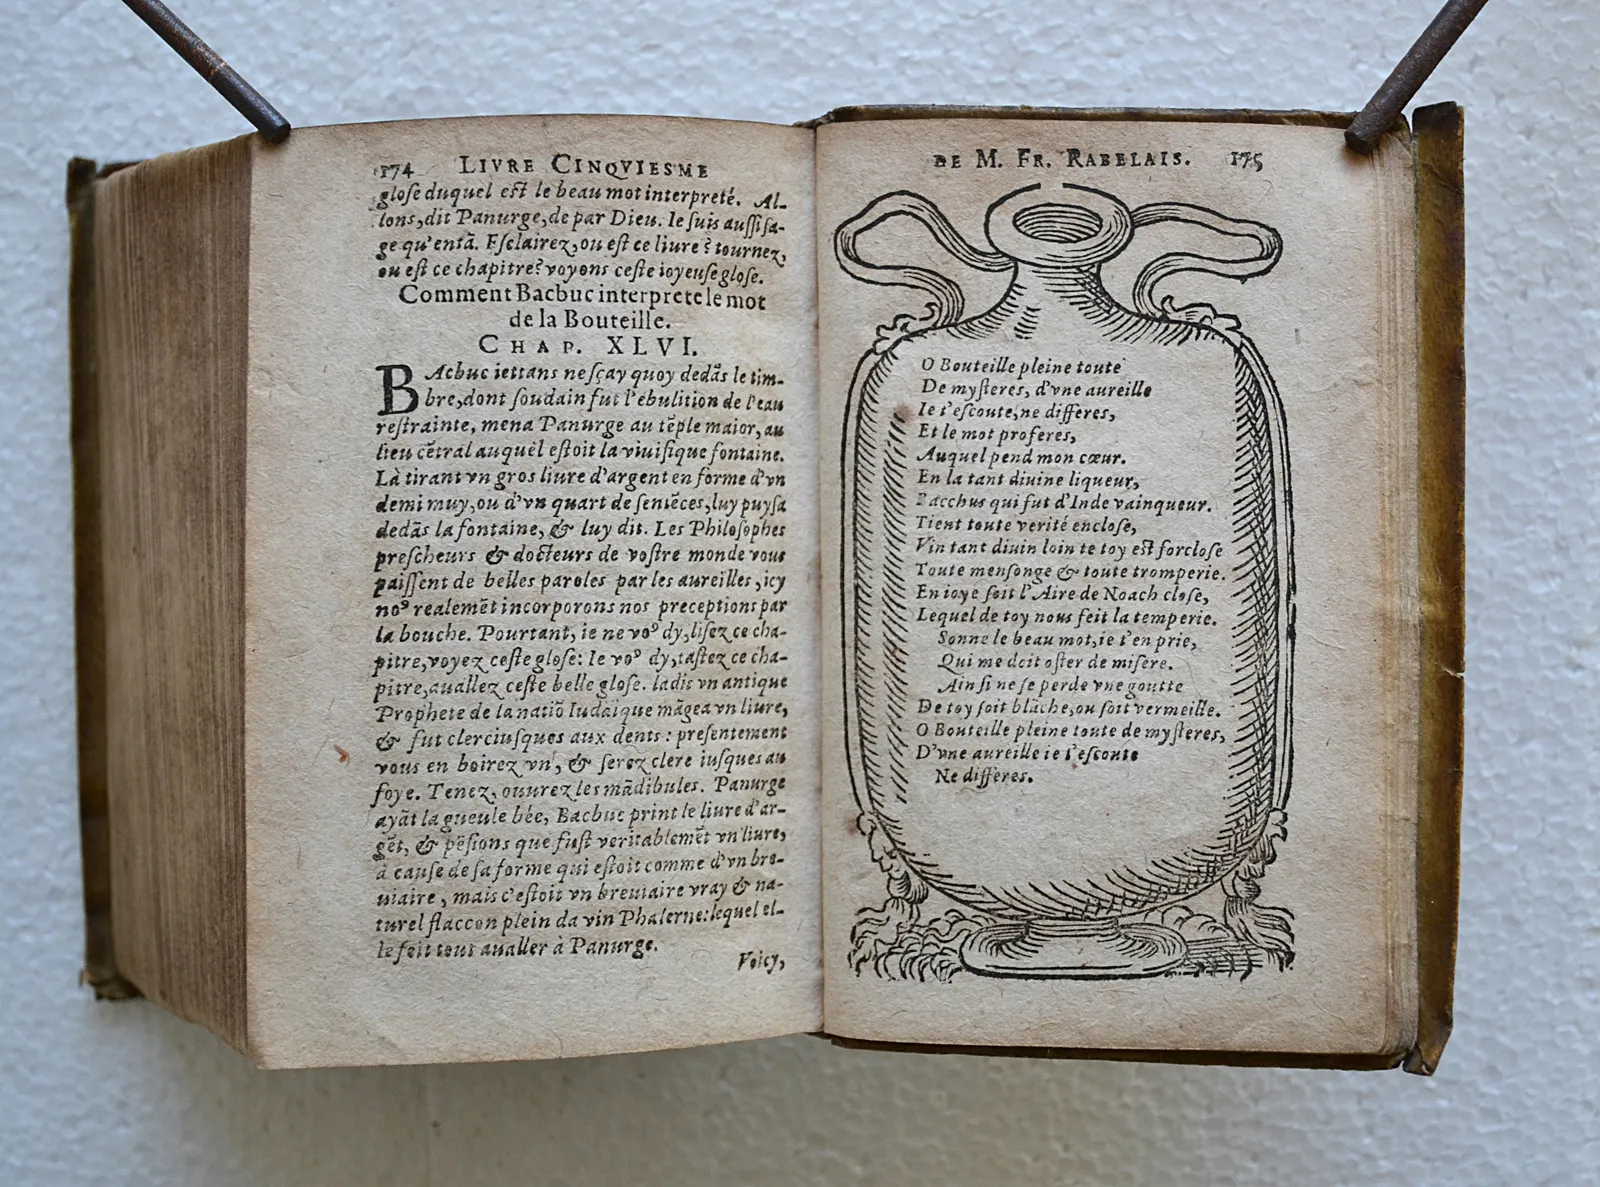 174 LIVRE CINQVIESME
glose duquel est le beau mot interpreté. Al-
lons, dit Panurge, de par Dieu. Ie suis aussi sa-
ge qu'entã. Esclairez, ou est ce livre? tournez,
ou est ce chapitre? voyons ceste ioyeuse glose.
Comment Bacbuc interprete le mot
de la Bouteille.
CHAP. XLVI.
BAcbuc iettans ne sçay quoy dedãs le tim-
bre, dont soudain fut l'ebulition de l'eau
restrainte, mena Panurge au tẽple maior, au
lieu cẽtral auquel estoit la viuifique fontaine.
Là tirant vn gros liure d'argent en forme d'vn
demi muy, ou d'vn quart de sentẽces, luy puysa
dedãs la fontaine, & luy dit. Les Philosophes
prescheurs & docteurs de vostre monde vous
paissent de belles paroles par les aureilles, icy
noꝰ realemẽt incorporons nos preceptions par
la bouche. Pourtant, ie ne voꝰ dy, lisez ce cha-
pitre, voyez ceste glose: Ie voꝰ dy, tastez ce cha-
pitre, auallez ceste belle glose. Iadis vn antique
Prophete de la natiõ Iudaique mãgea vn liure,
& fut clerc iusques aux dents: presentement
vous en boirez vn, & serez clerc iusques au
foye. Tenez, ouurez les mãdibules. Panurge
ayãt la gueule bée, Bacbuc print le liure d'ar-
gẽt, & pẽsions que fust veritablemẽt vn liure,
à cause de sa forme qui estoit comme d'vn bre-
uiaire, mais c'estoit vn breuiaire vray & na-
turel flaccon plein da vin Phalerne: lequel el-
le feit tout aualler à Panurge.
Voicy,
DE M. FR. RABELAIS. 175
O Bouteille pleine toute
De mysteres, d'vne aureille
Ie t'escoute, ne differes,
Et le mot proferes,
Auquel pend mon cœur.
En la tant diuine liqueur,
Bacchus qui fut d'Inde vainqueur.
Tient toute verité enclose,
Vin tant diuin loin te toy est forclose
Toute mensonge & toute tromperie.
En ioye soit l'Aire de Noach close,
Lequel de toy nous feit la temperie.
Sonne le beau mot, ie t'en prie,
Qui me doit oster de misere.
Ainsi ne se perde vne goutte
De toy soit blãche, ou soit vermeille.
O Bouteille pleine toute de mysteres,
D'vne aureille ie t'escoute
Ne differes.